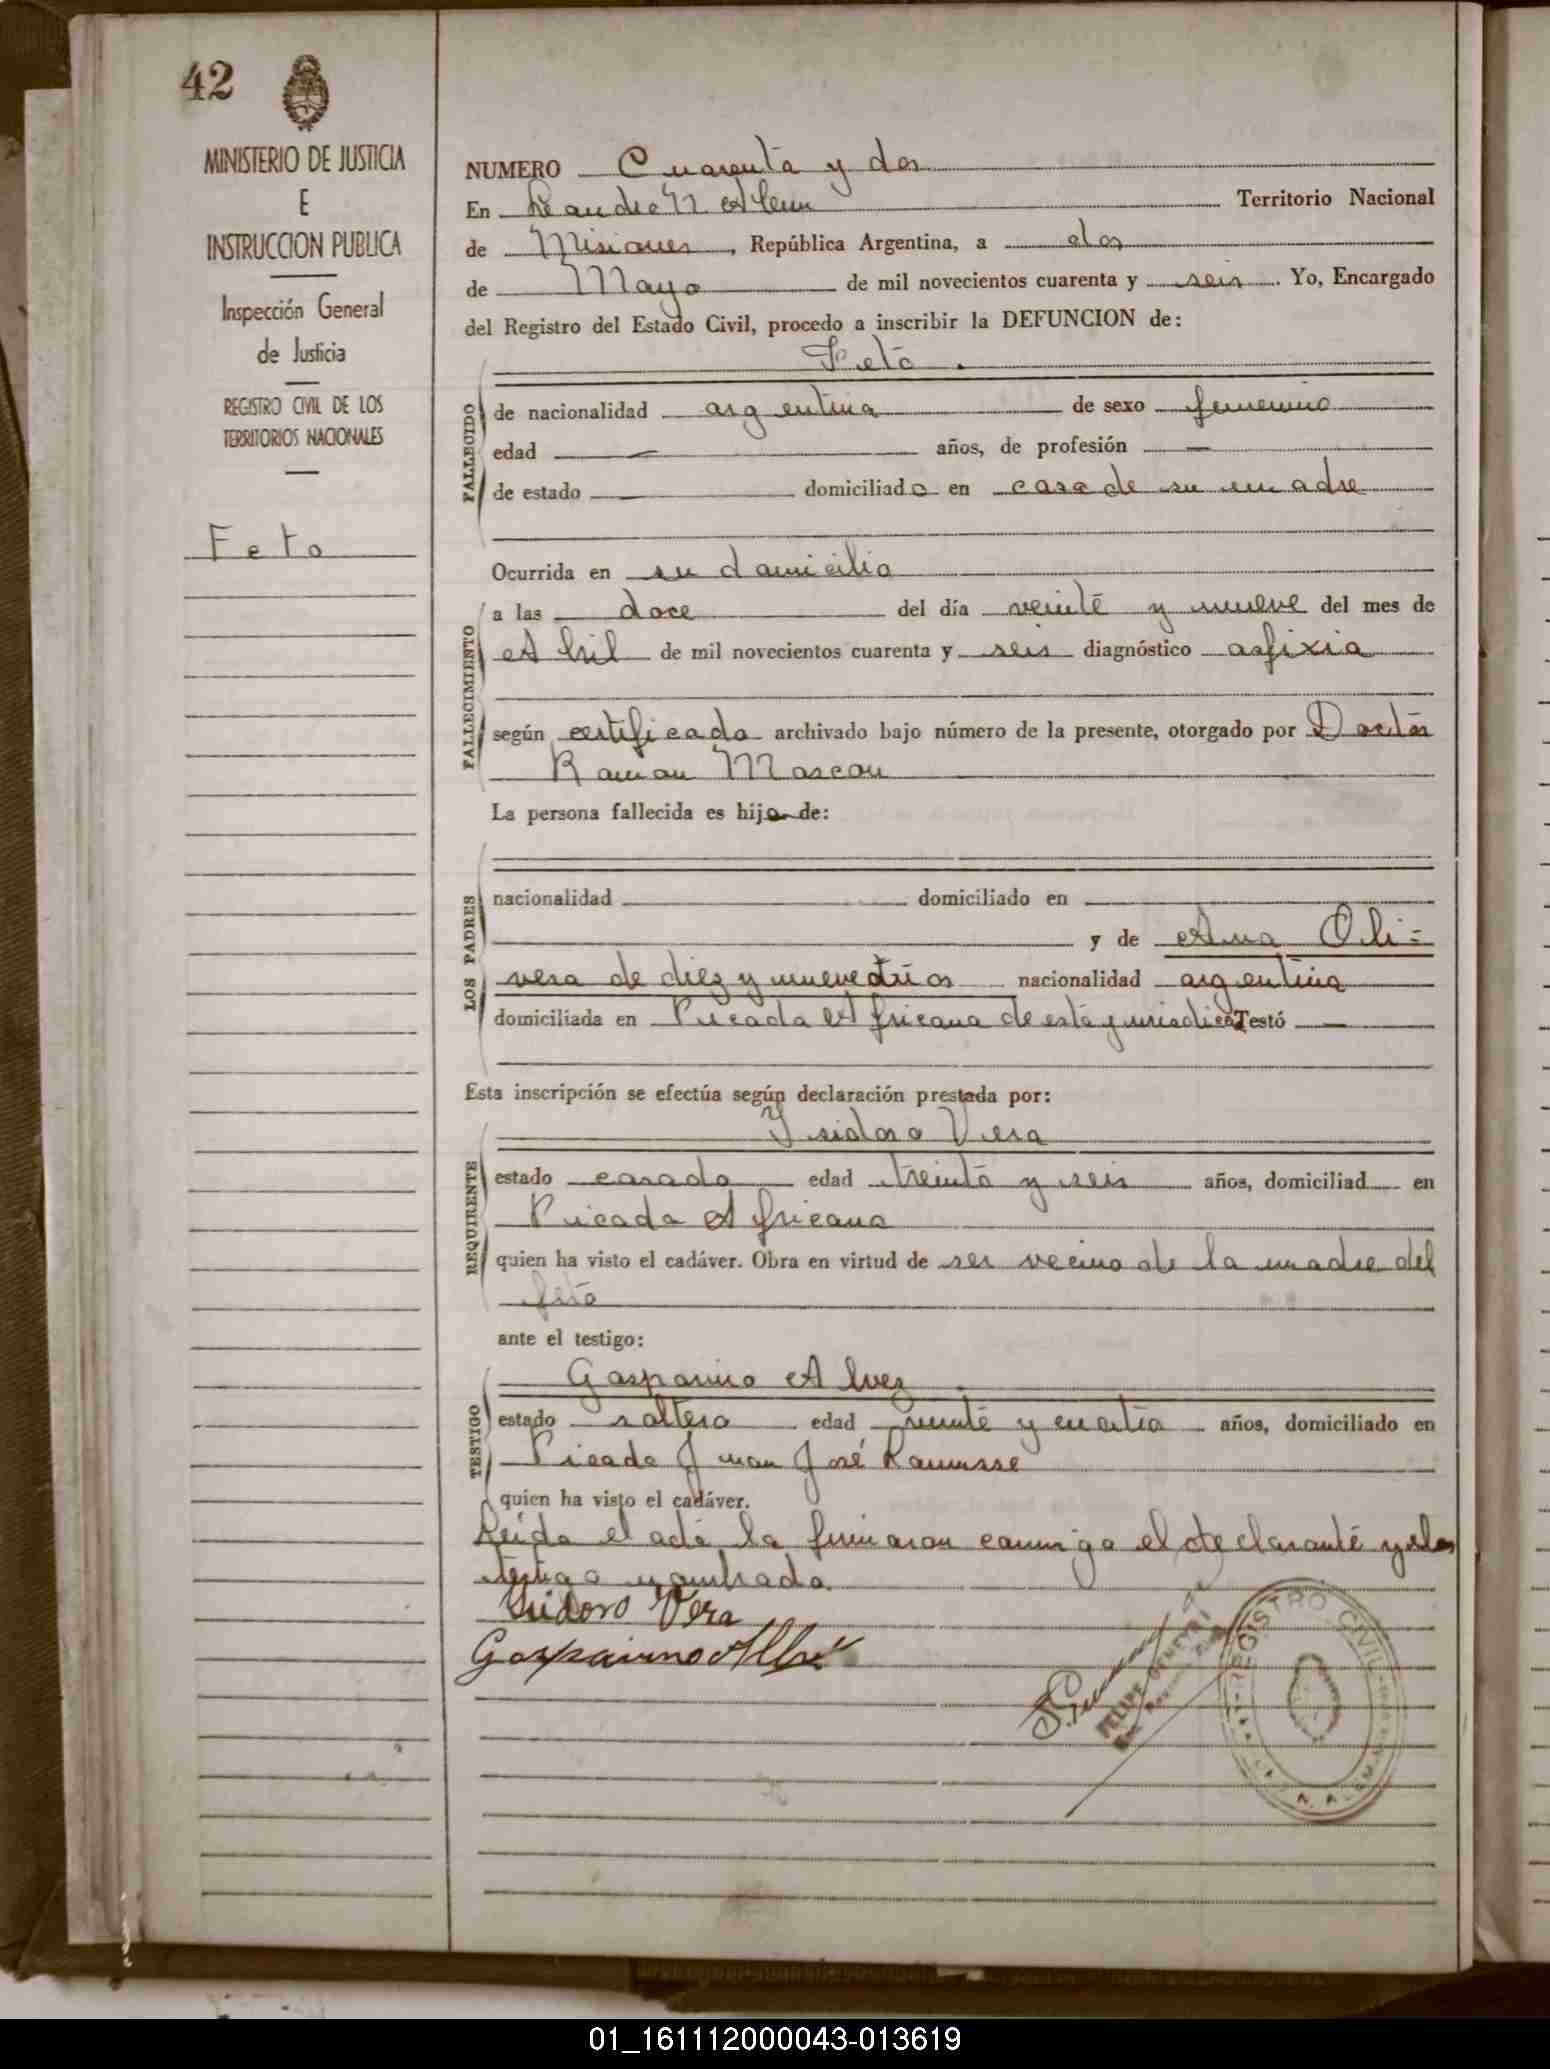 42
MINISTERIO DE JUSTICIA
E
INSTRUCCION PUBLICA
Inspección General
de Justicia
REGISTRO CIVIL DE LOS
TERRITORIOS NACIONALES
Feto
NUMERO Cuarenta y dos
En Leandro N Alem Territorio Nacional
de Misiones, República Argentina, a dos
de Mayo de mil novecientos cuarenta y seis. Yo, Encargado
del Registro del Estado Civil, procedo a inscribir la DEFUNCION de:
Feto.
FALLECIDO
de nacionalidad argentina de sexo femenino
edad — años, de profesión —
de estado — domiciliado en casa de su madre
Ocurrida en su domicilio
FALLECIMIENTO
a las doce del día veinte y nueve del mes de
Abril de mil novecientos cuarenta y seis diagnóstico asfixia
según certificado archivado bajo número de la presente, otorgado por Doctor
Ramon
La persona fallecida es hijo de:
LOS PADRES
nacionalidad domiciliado en
y de Ana Oli=
vera de diez y nueve años nacionalidad argentina
domiciliada en Picada Africana de esta Testó —
Esta inscripción se efectúa según declaración prestada por:
Ysidoro Vera
REQUIRENTE
estado casado edad treinta y seis años, domiciliad en
Picada Africana
quien ha visto el cadáver. Obra en virtud de ser vecino de la madre del
feto
ante el testigo:
Gasparino Alvez
TESTIGO
estado soltero edad veinte y cuatro años, domiciliado en
Picada Juan José
quien ha visto el cadáver.
Leida el acta la firmaron conmigo el declarante y el
testigo nombrado.
Isidoro Vera
Gasparino
FELIPE
REGISTRO CIVIL
N. ALEM
01_161112000043-013619